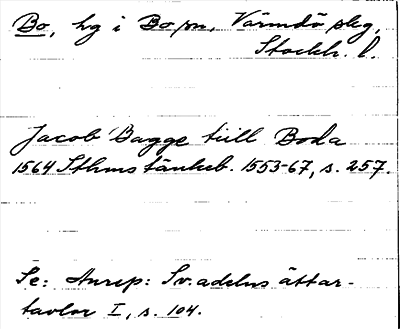 Bo, hg i Bo sn, Värmdö skg,
Stockh. l.
Jacob Bagge tiill Boda
1564 Sthms tänkeb. 1553-67, s. 257.
Se: Anrep: Sv. adelns ättar-
tavlor I, s. 104.